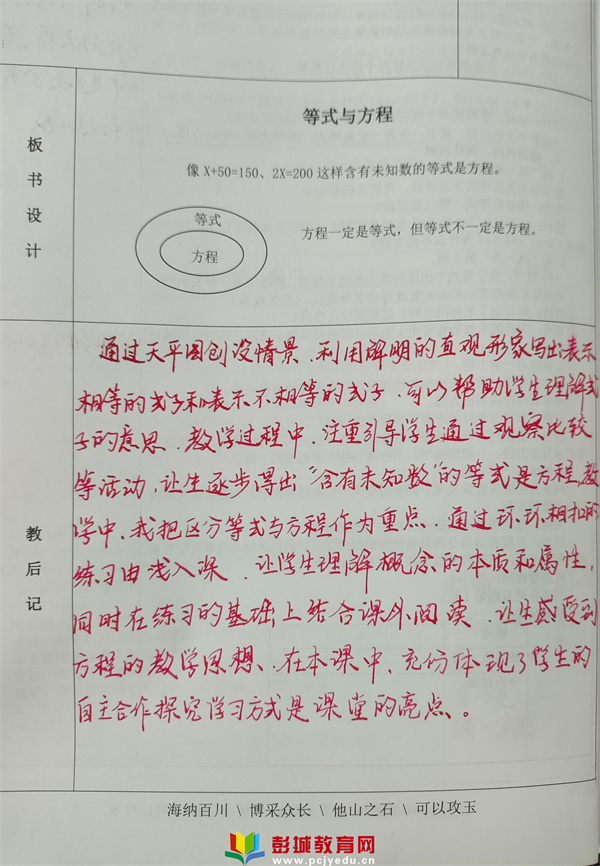 板书设计
等式与方程
像 X+50=150、2X=200 这样含有未知数的等式是方程。
等式
方程
方程一定是等式，但等式不一定是方程。
教后记
通过天平图创设情景，利用鲜明的直观形象写出表示
相等的式子和表示不相等的式子，可以帮助学生理解式
子的意思，教学过程中，注重引导学生通过观察比较
等活动，让生逐步得出“含有未知数”的等式是方程，教
学中，我把区分等式与方程作为重点，通过环环相扣的
练习由浅入深，让学生理解概念的本质和属性，
同时在练习的基础上结合课外阅读，让生感受到
方程的数学思想、在本课中，充份体现了学生的
自主合作探究学习方式是课堂的亮点。
海纳百川 \ 博采众长 \ 他山之石 \ 可以攻玉
彭城教育网
www.pcjyedu.cn